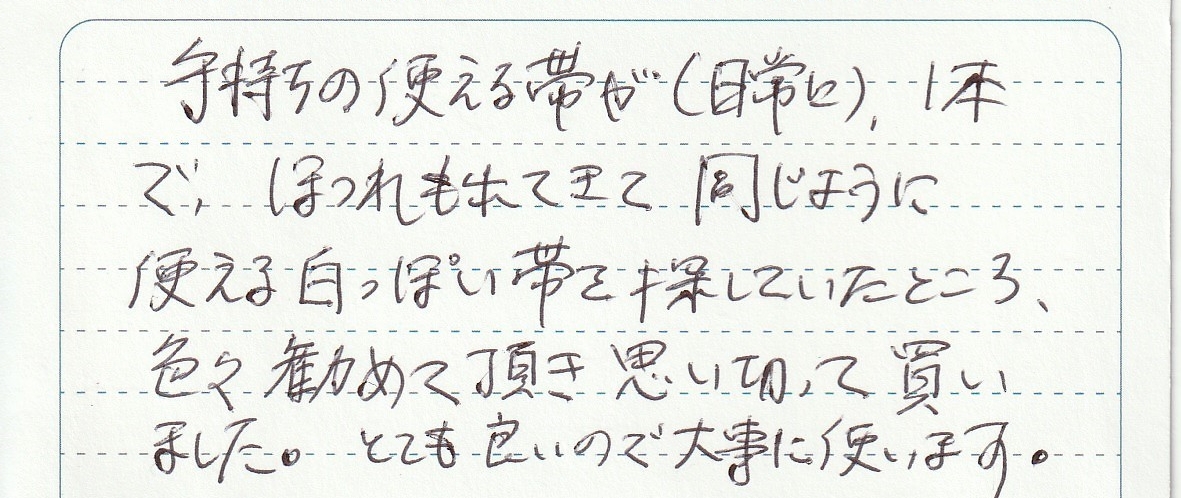 手持ちの使える帯が(日常に)、1本
で、ほつれも出てきて同じように
使える白っぽい帯を探していたところ、
色々勧めて頂き思い切って買い
ました。とても良いので大事に使います。